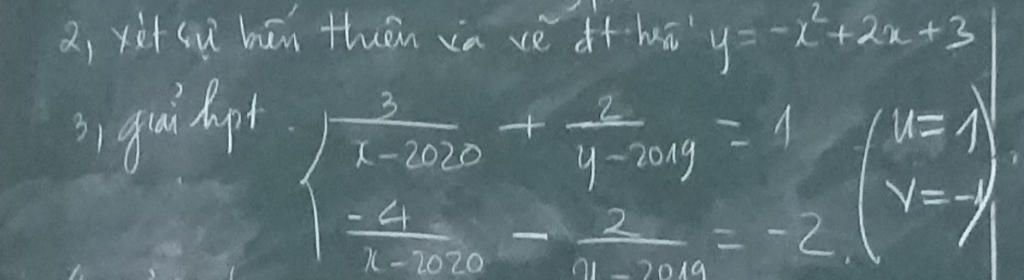 2, xét sự biến thiên và vẽ đt hsố y = -x² + 2x + 3
3, giải hpt { 3/(x-2020) + 2/(y-2019) = 1 (u = 1
-4/(x-2020) - 2/(y-2019) = -2. v = -1)